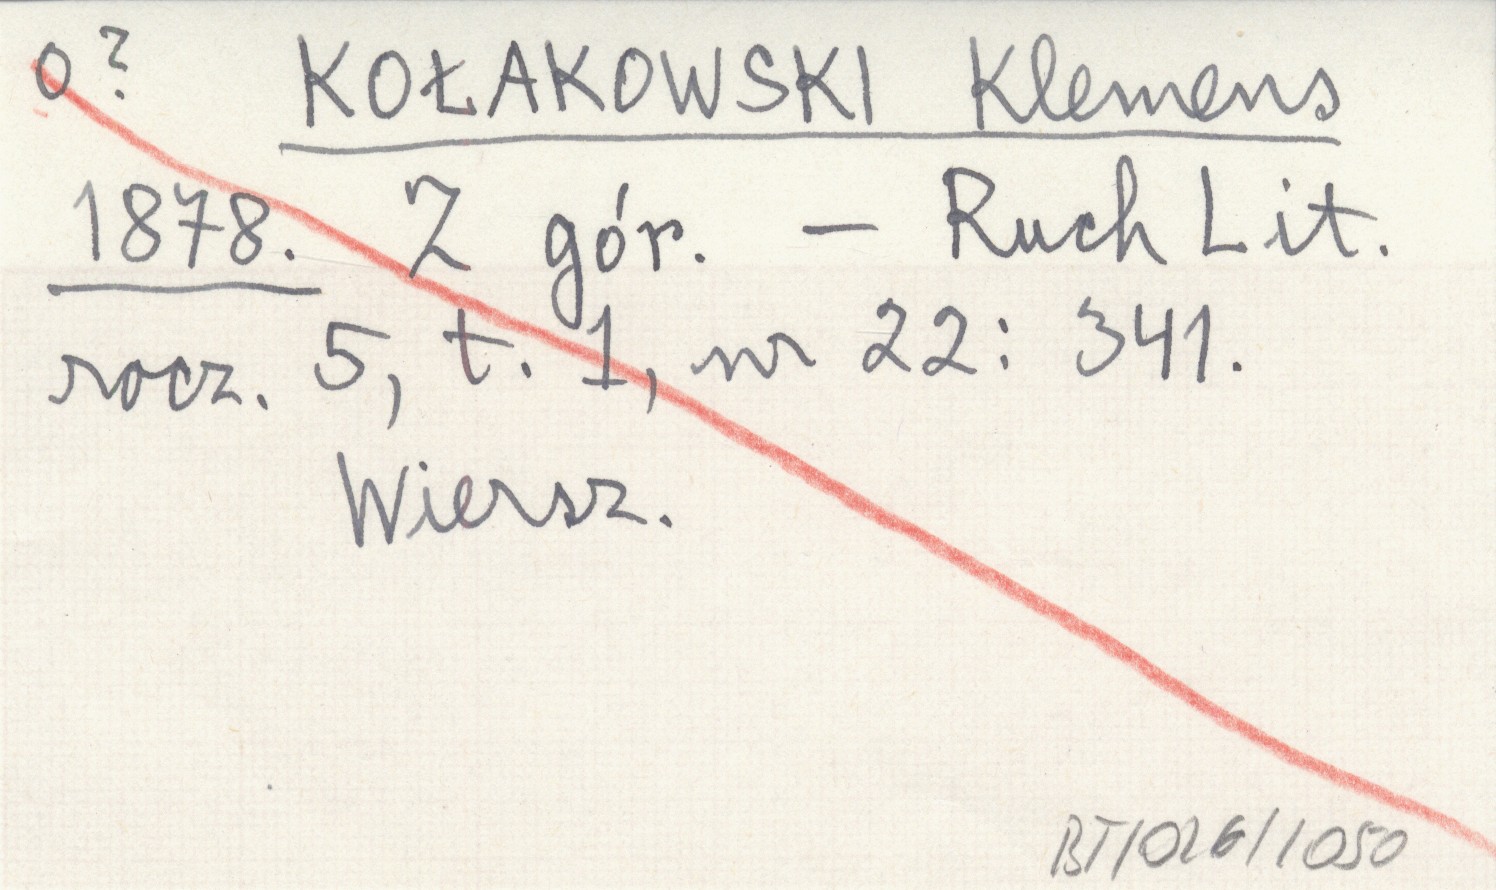 o? KOŁAKOWSKI Klemens
1878. Z gór. – Ruch Lit.
rocz. 5, t. 1, nr 22: 341.
Wiersz.
BT/026/1050